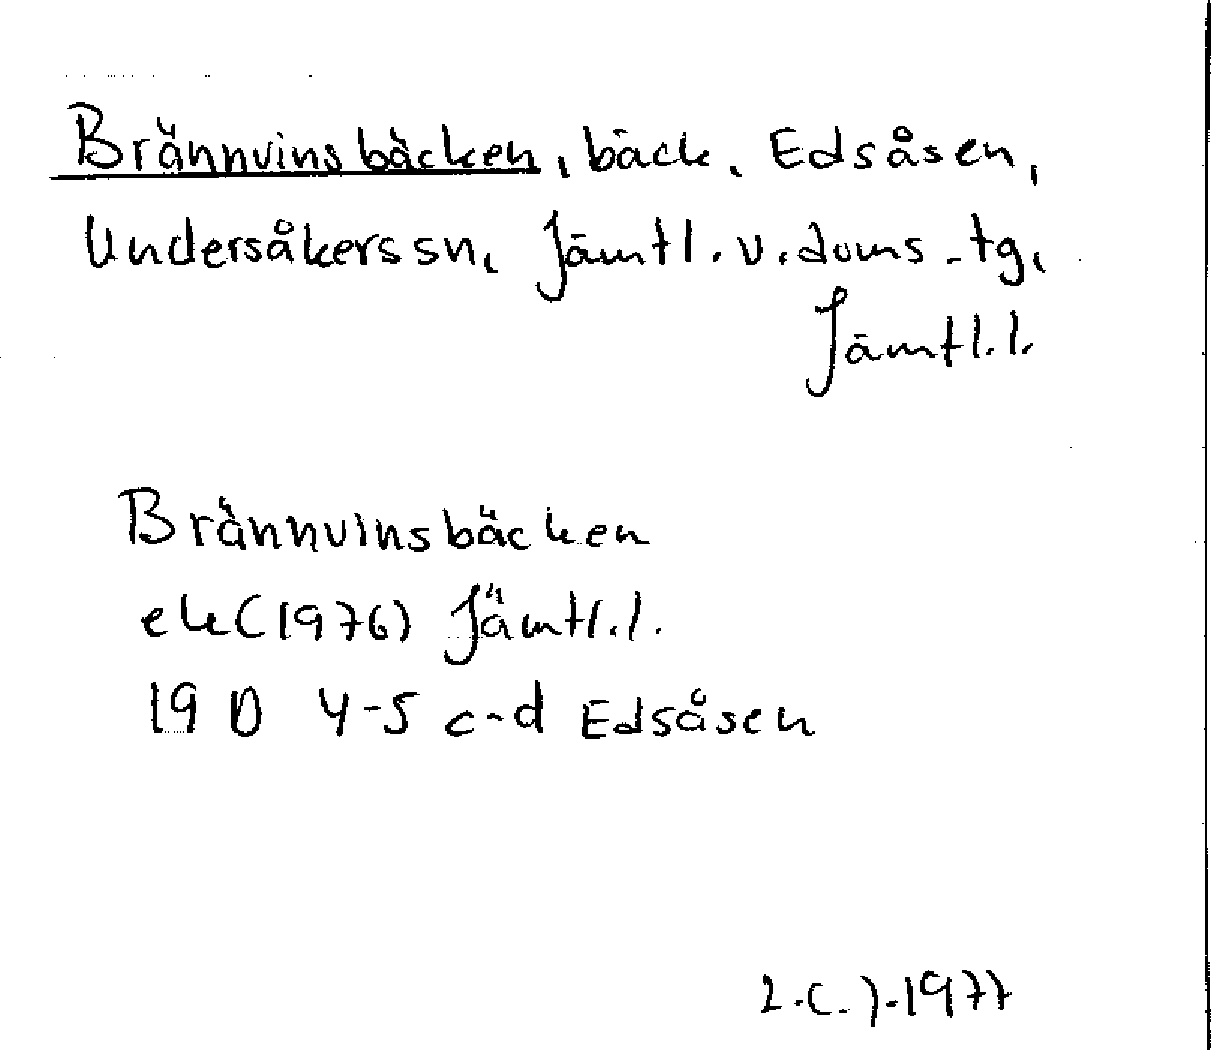 Brännvinsbäcken, bäck, Edsåsen,
Undersåkers sn, Jämtl. v. doms. tg,
Jämtl. l.
Brännvinsbäcken
ek (1976) Jämtl. l.
19 D 4-5 c-d Edsåsen
1977